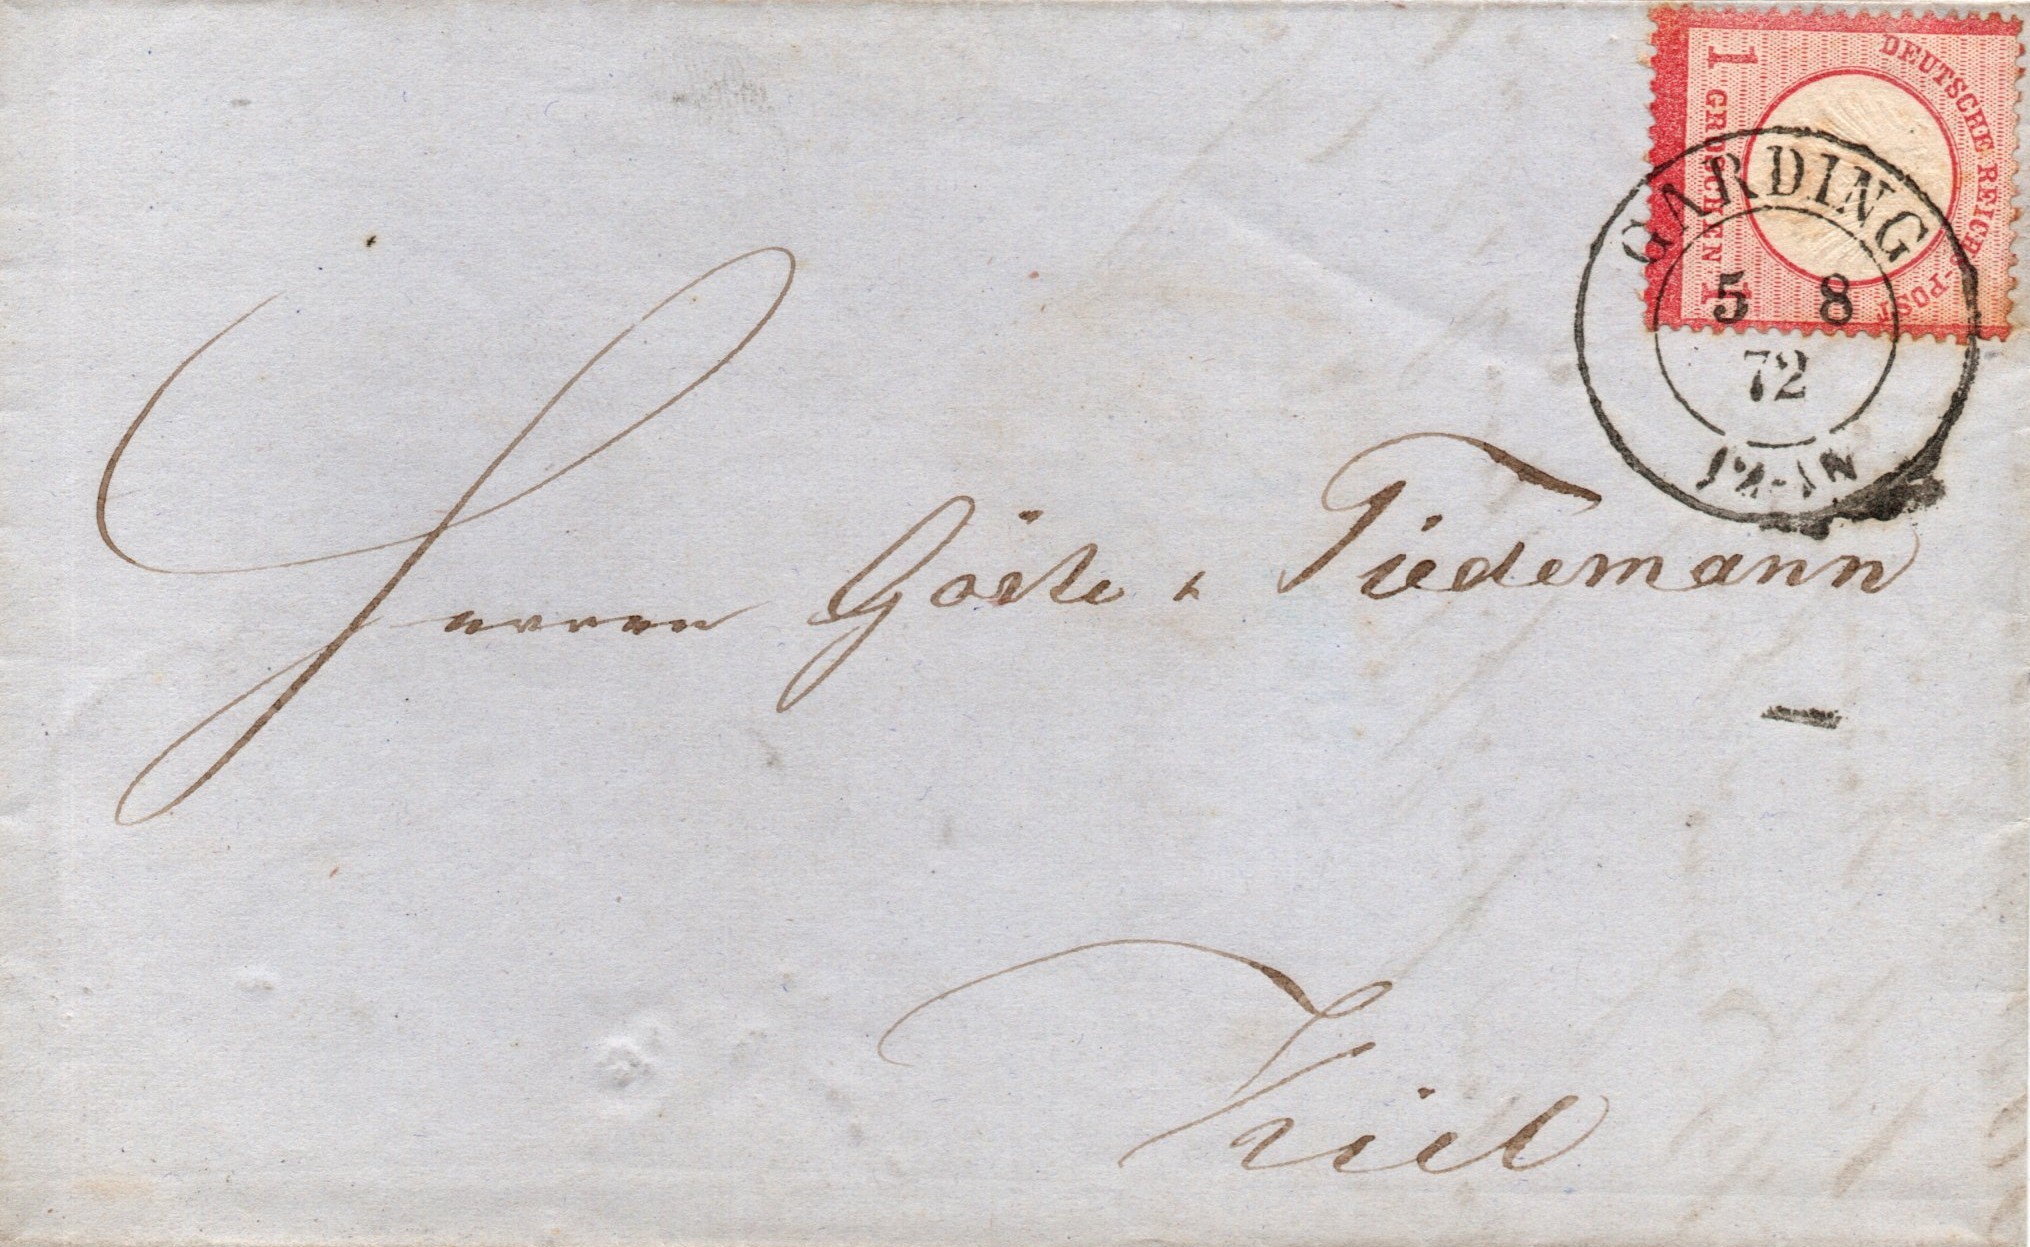 DEUTSCHE REICHS-POST
1 GROSCHEN 1
GARDING
5 8
72
Herren Götte & Tiedemann
Kiel